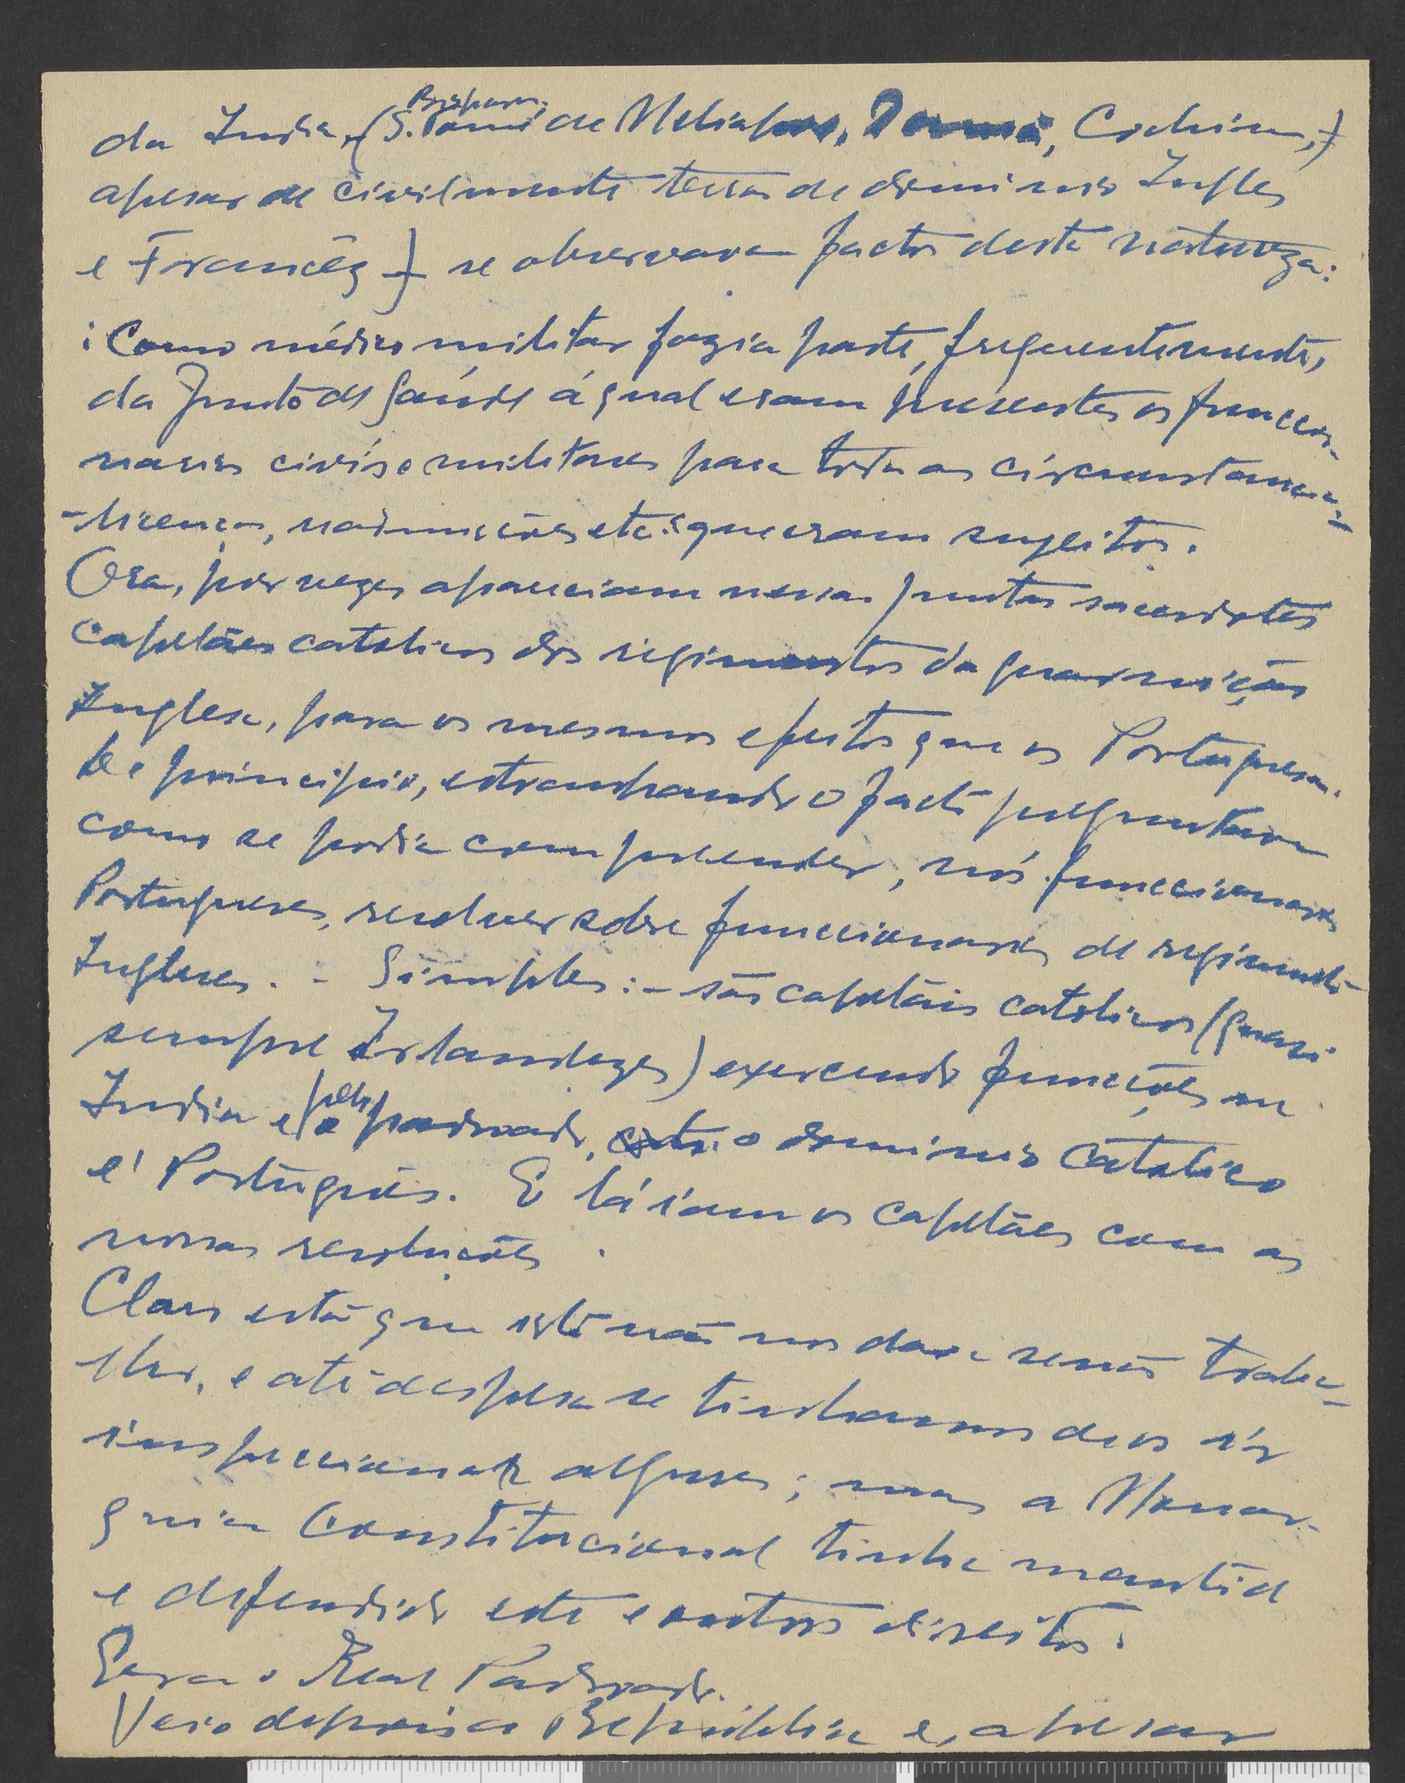 da India, (S. Tomé de Meliapor, Damã, Cochim,)
apesar de civilmente terras de dominio Ingles
e Francês) se observavam factos desta natureza:
: Como médico militar fazia parte, frequentemente,
da Junta de Saúde á qual eram presentes os funccio-
narios civis e militares para todas as circumstancias
- licenças, etc. a que eram sugeitos.
Ora, por vezes apareciam nessas juntas sacerdotes
capelães catolicos dos regimentos da guarnição
Inglesa, para os mesmos efeitos que os Portugueses.
De principio, estranhando o facto preguntava
como se podia comprehender, nós funccionarios
Portugueses, resolver sobre funccionarios de regimentos
Ingleses. - Simples: - são capelães catolicos (quasi
sempre Irlandezes) exercendo funções na
India e pelo padroado, o dominio catolico
e' Português. E lá iam os capelães com as
nossas resoluções.
Claro está que isto não nos dava senão traba-
lho, e até despesa se tinhamos de os ir
inspeccionar algures; mas a Monar-
quia Constitucional tinha mantido
e defendido este e outros direitos.
Era o Real Padroado.
Veio depois a Republica e, apesar